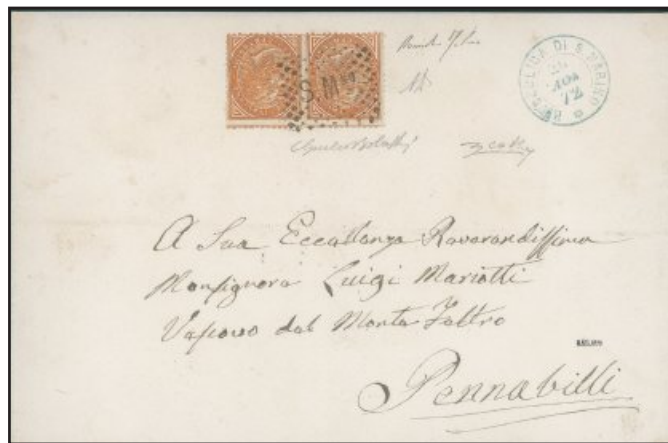 REPUBBLICA DI S. MARINO
72
S. Mno
A Sua Eccellenza Reverendissima
Monsignore Luigi Mariotti
Vescovo del Monte Feltro
Pennabilli